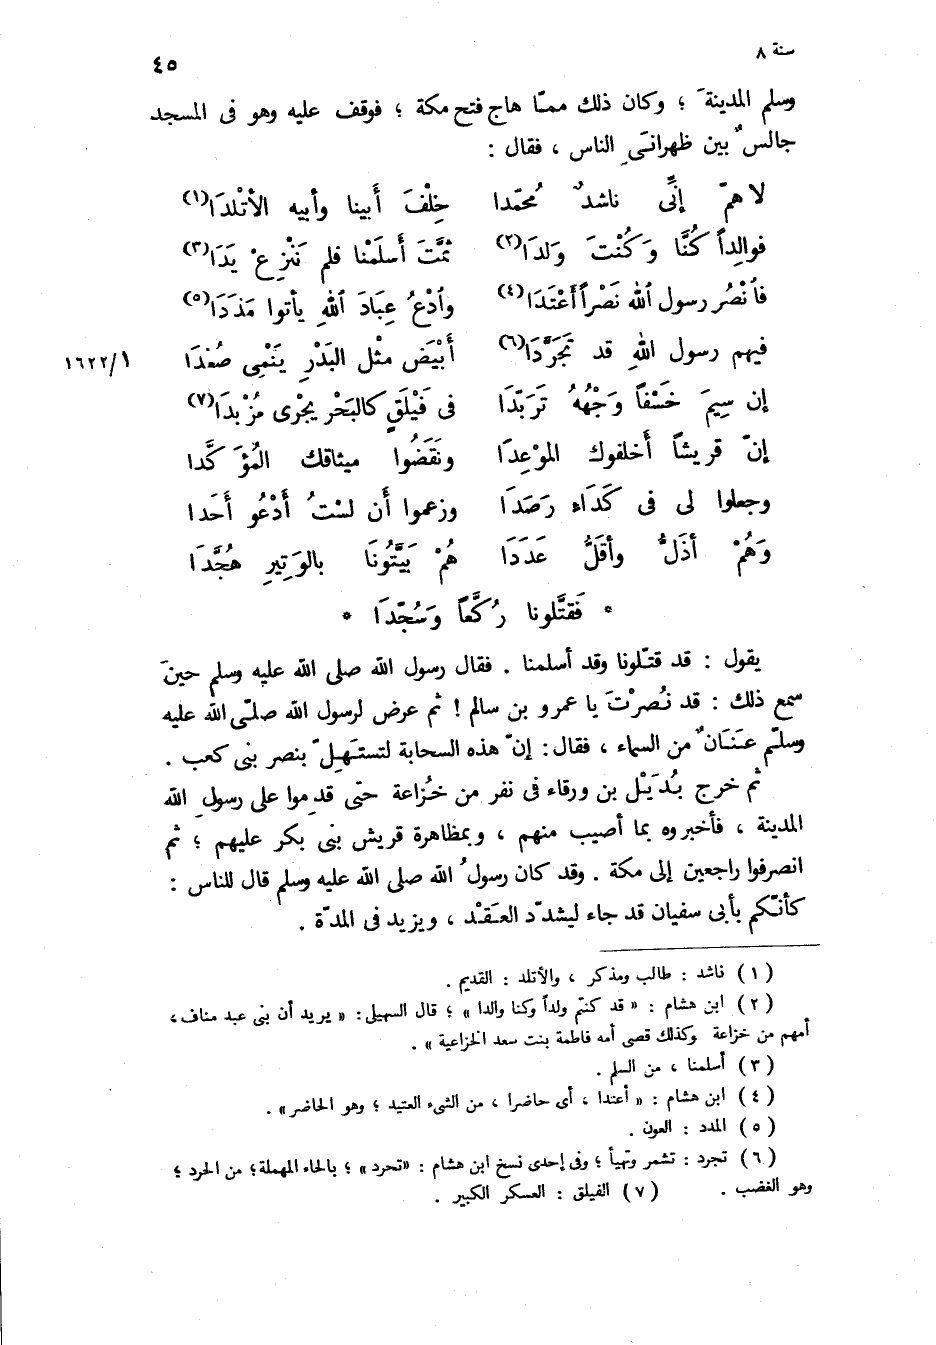 سنة ٨
٤٥
وسلم المدينةَ ؛ وكان ذلك ممـّا هاج فتح مكة ؛ فوقف عليه وهو فى المسجد
جالسٌ بين ظهرانَىِ الناس ، فقال :
لاهمّ إنِّى ناشدٌ مُحمّدا خِلْفَ أَبينا وأبيه الأتْلدَا(١)
فوالِداً كُنَّا وَكُنْتَ وَلدَا(٢) ثمَّتَ أَسلَمْنا فلم نَنْزِعْ يَدَا(٣)
فاْنْصُر رسول اللهْ نَصْراً أعْتَدَا(٤) واْدْعُ عِبَادَ اللهِ يأتوا مَدَدَا(٥)
فيهم رسول اللهِ قد تَجَرَّدَا(٦) أَبْيَضَ مثْل البَدْرِ يَنْمِى صُعُدَا
١٦٢٢/١
إن سِيمَ خَسْفاً وَجْهُهُ تَرَبّدَا فى فَيْلَقٍ كالبَحْر يجْرى مُزْبدَا(٧)
إنّ قريشاً أَخلفوك الموْعِدَا ونَقَضُوا ميثاقك المُؤكَّدا
وجعلوا لى فى كَدَاء رَصَدَا وزعموا أَن لسْتُ أَدْعُو أَحَدا
وَهُمْ أذَلُّ وأقَلُّ عَدَدَا هُمْ بَيَّتُونَا بالوَتِيرِ هُجَّدَا
* فَقتَّلونا رُكَّعاً وَسُجّدَا *
يقول : قد قتـّلونا وقد أسلمنا . فقال رسول الله صلى الله عليه وسلم حينَ
سمع ذلك : قد نُصرْتَ يا عمرو بن سالم ! ثم عرض لرسول الله صلـّى الله عليه
وسلـّم عـَنـَانٌ من السماء ، فقال : إنّ هذه السحابة لتستـَهـِلّ بنصر بنى كعب .
ثم خرج بُدَيْل بن ورقاء فى نفر من خـُزاعة حتى قدِموا على رسولِ الله
المدينة ، فأخبروه بما أصيب منهم ، وبمظاهرة قريش بنى بكر عليهم ؛ ثم
انصرفوا راجعين إلى مكة . وقد كان رسولُ الله صلى الله عليه وسلم قال للناس :
كأنـّكم بأبى سفيان قد جاء ليشدّد العـَقـْد ، ويزيد فى المدّة .
(١) ناشد : طالب ومذكر ، والأتلد : القديم .
(٢) ابن هشام : « قد كنتم ولداً وكنا والدا » ؛ قال السهيلى : « يريد أن بنى عبد مناف ،
أمهم من خزاعة وكذلك قصى أمه فاطمة بنت سعد الخزاعية » .
(٣) أسلمنا ، من السلم .
(٤) ابن هشام : « أعتدا ، أى حاضرا ، من الشىء العتيد ؛ وهو الحاضر » .
(٥) المدد : العون .
(٦) تجرد : تشمر وتهيأ ؛ وفى إحدى نسخ ابن هشام : «تحرد» ؛ بالحاء المهملة ؛ من الحرد ؛
وهو الغضب . (٧) الفيلق : العسكر الكبير .